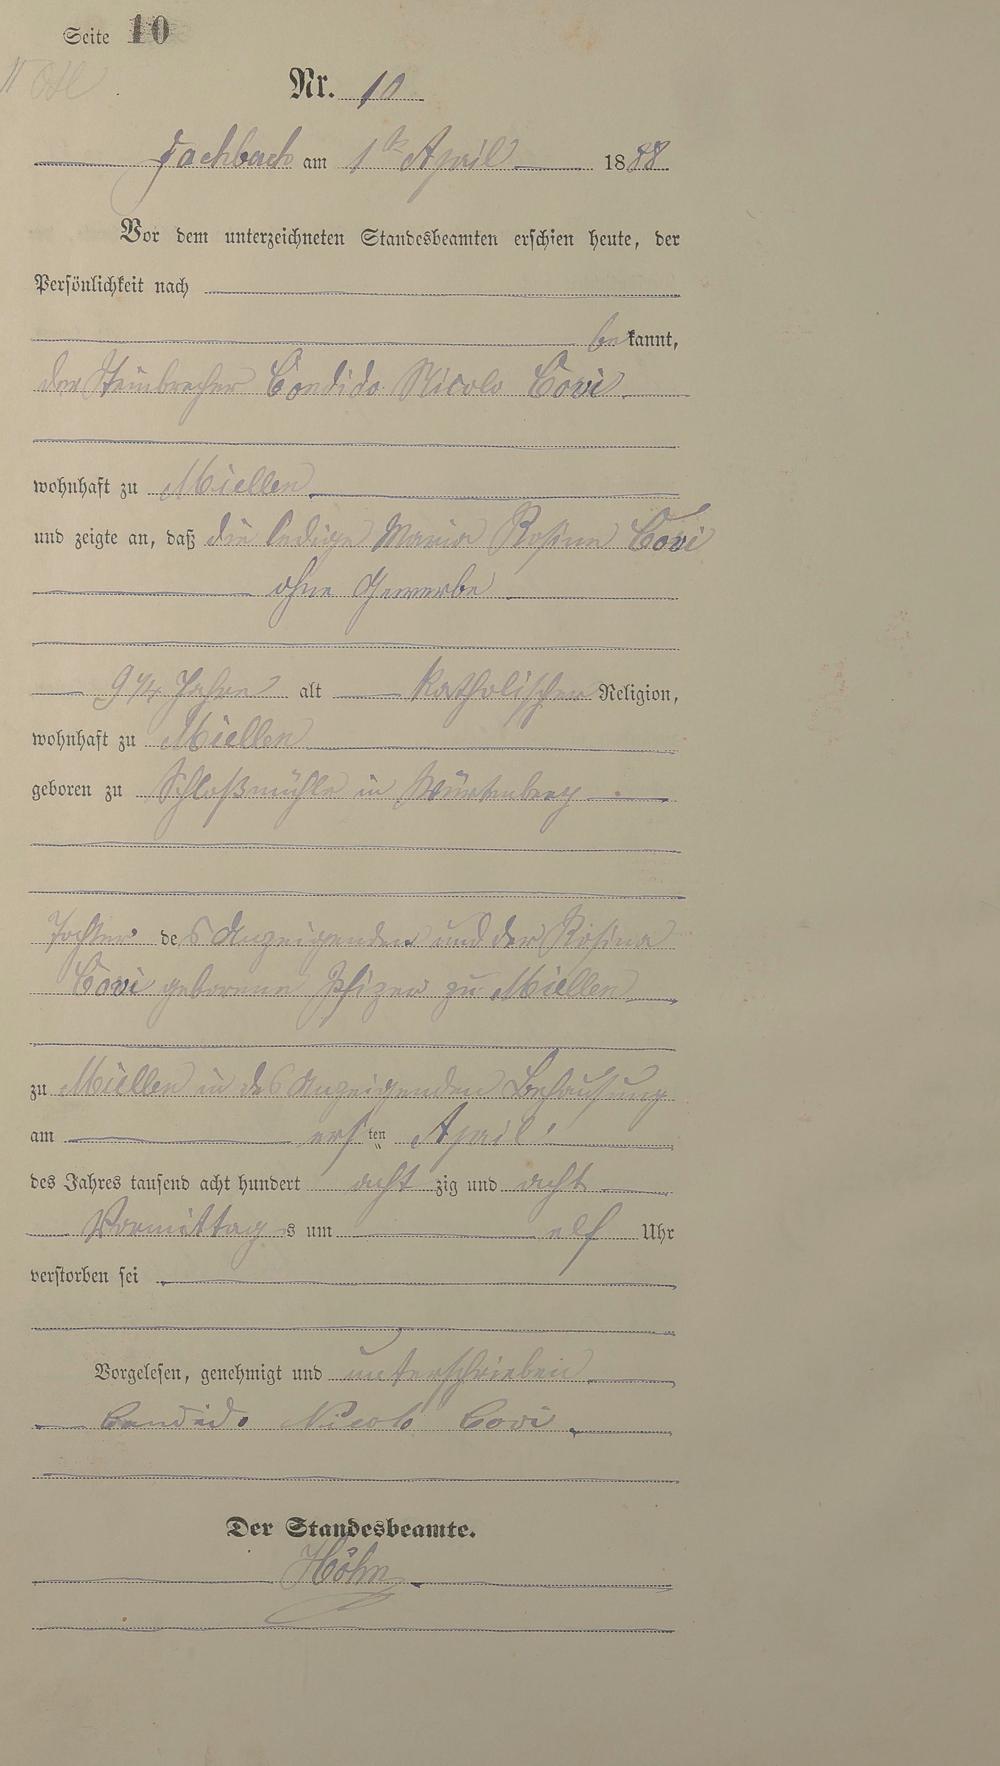 Seite 10
Nr. 10
Fachbach am 1ten April 1888
Vor dem unterzeichneten Standesbeamten erschien heute, der
Persönlichkeit nach
bekannt,
der Steinbrecher Condido Nicolo Covi
wohnhaft zu Miellen
und zeigte an, daß die ledige Maria Rosina Covi
ohne Gewerbe
9 1/4 Jahre alt katholischer Religion,
wohnhaft zu Miellen
geboren zu Schloßmühle in Würtemberg
Tochter des Anzeigenden und der Rosina
Covi geborene Pfizer zu Miellen
zu Miellen in des Anzeigenden Behausung
am ersten April
des Jahres tausend acht hundert achtzig und acht
Vormittags um elf Uhr
verstorben sei
Vorgelesen, genehmigt und unterschrieben
Candido Nicolo Covi
Der Standesbeamte.
Höhn